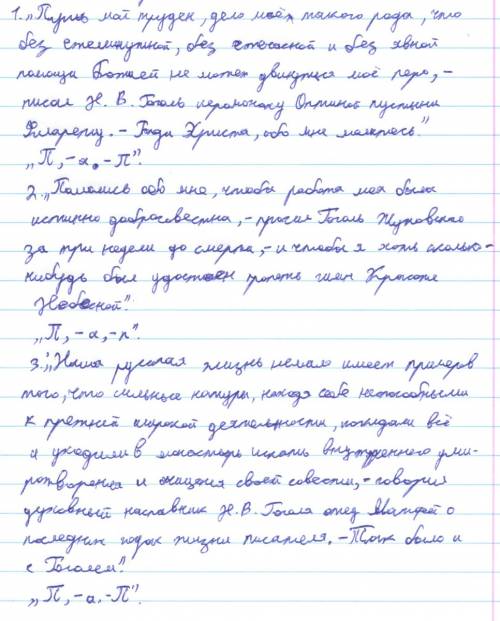 1. „Путь мой труден, дело моё такого рода, что
без ежеминутной, без ежечасной и без явной
помощи Божией не может двинуться моё перо, –
писал Н. В. Гоголь иеромонаху Оптиной пустыни
Филарету. – Ради Христа, обо мне молитесь."
„П, – а. – П".
2. „Помолись обо мне, чтобы работа моя была
истинно добросовестна, – просил Гоголь Жуковского
за три недели до смерти, – и чтобы я хоть сколько-
нибудь был удостоен пропеть гимн Красоте
Небесной".
„П, – а, – п".
3. „Наша русская жизнь немало имеет примеров
того, что сильные натуры, находя себя неспособными
к прежней широкой деятельности, покидали всё
и уходили в монастырь искать внутреннего уми-
ротворения и очищения своей совести, – говорил
духовный наставник Н. В. Гоголя отец Матфей о
последних годах жизни писателя. – Так было и
с Гоголем".
„П, – а. – П".